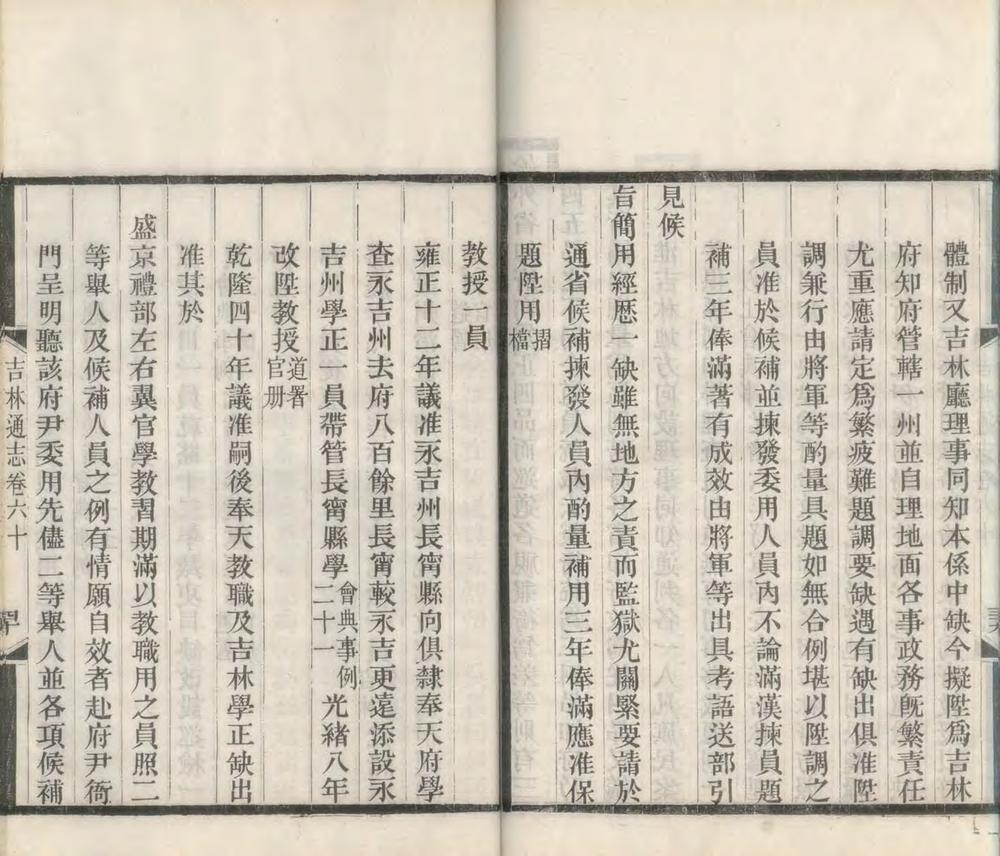 體制又吉林廳理事同知本係中缺今擬陞爲吉林
府知府管轄一州並自理地面各事政務旣繁責任
尤重應請定爲繁疲難題調要缺遇有缺出俱准陞
調兼行由將軍等酌量具題如無合例堪以陞調之
員准於候補並揀發委用人員內不論滿漢揀員題
補三年俸滿著有成效由將軍等出具考語送部引
見候
旨簡用經歷一缺雖無地方之責而監獄尤關緊要請於
通省候補揀發人員內酌量補用三年俸滿應准保
題陞用摺檔
教授一員
雍正十二年議准永吉州長甯縣向俱隸奉天府學
查永吉州去府八百餘里長甯較永吉更遠添設永
吉州學正一員帶管長甯縣學會典事例二十一光緒八年
改陞教授道署官册
乾隆四十年議准嗣後奉天教職及吉林學正缺出
准其於
盛京禮部左右翼官學教習期滿以教職用之員照二
等舉人及候補人員之例有情願自效者赴府尹衙
門呈明聽該府尹委用先儘二等舉人並各項候補
吉林通志卷六十